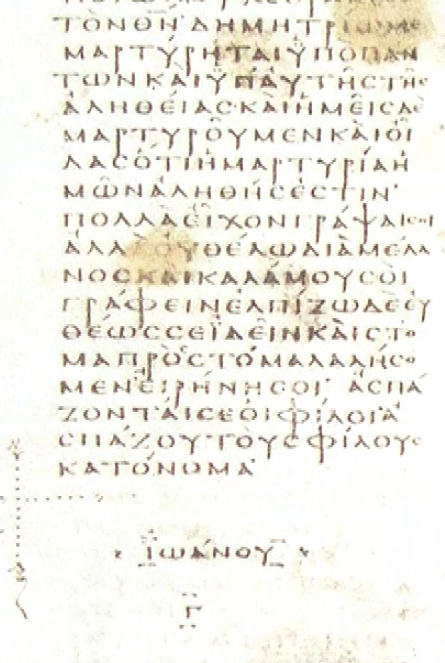 ΤΟΝΘΝΔΗΜΗΤΡΙΩΜΕ
ΜΑΡΤΥΡΗΤΑΙΫΠΟΠΑΝ
ΤΩΝΚΑΙΫΠΑΥΤΗϹΤΗϹ
ΑΛΗΘΕΙΑϹΚΑΙΗΜΕΙϹΔΕ
ΜΑΡΤΥΡΟΥΜΕΝΚΑΙΟΙ
ΔΑϹΟΤΙΗΜΑΡΤΥΡΙΑΗ
ΜΩΝΑΛΗΘΗϹΕϹΤΙΝ
ΠΟΛΛΑΕΙΧΟΝΓΡΑΨΑΙϹΟΙ
ΑΛΛΟΥΘΕΛΩΔΙΑΜΕΛΑ
ΝΟϹΚΑΙΚΑΛΑΜΟΥϹΟΙ
ΓΡΑΦΕΙΝΕΛΠΙΖΩΔΕΕΥ
ΘΕΩϹϹΕΪΔΕΙΝΚΑΙϹΤΟ
ΜΑΠΡΟϹϹΤΟΜΑΛΑΛΗϹΟ
ΜΕΝΕΙΡΗΝΗϹΟΙ ΑϹΠΑ
ΖΟΝΤΑΙϹΕΟΙΦΙΛΟΙΑ
ϹΠΑΖΟΥΤΟΥϹΦΙΛΟΥϹ
ΚΑΤΟΝΟΜΑ
ΪΩΑΝΟΥ
Γ